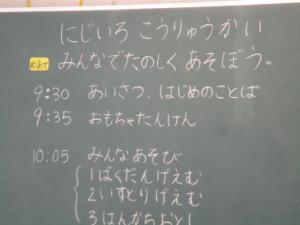 にじいろ こうりゅうかい
めあて みんなでたのしく あそぼう。
9:30 あいさつ、はじめのことば
9:35 おもちゃたんけん
10:05 みんなあそび
1ばくだんげえむ
2いすとりげえむ
3はんかちおとし